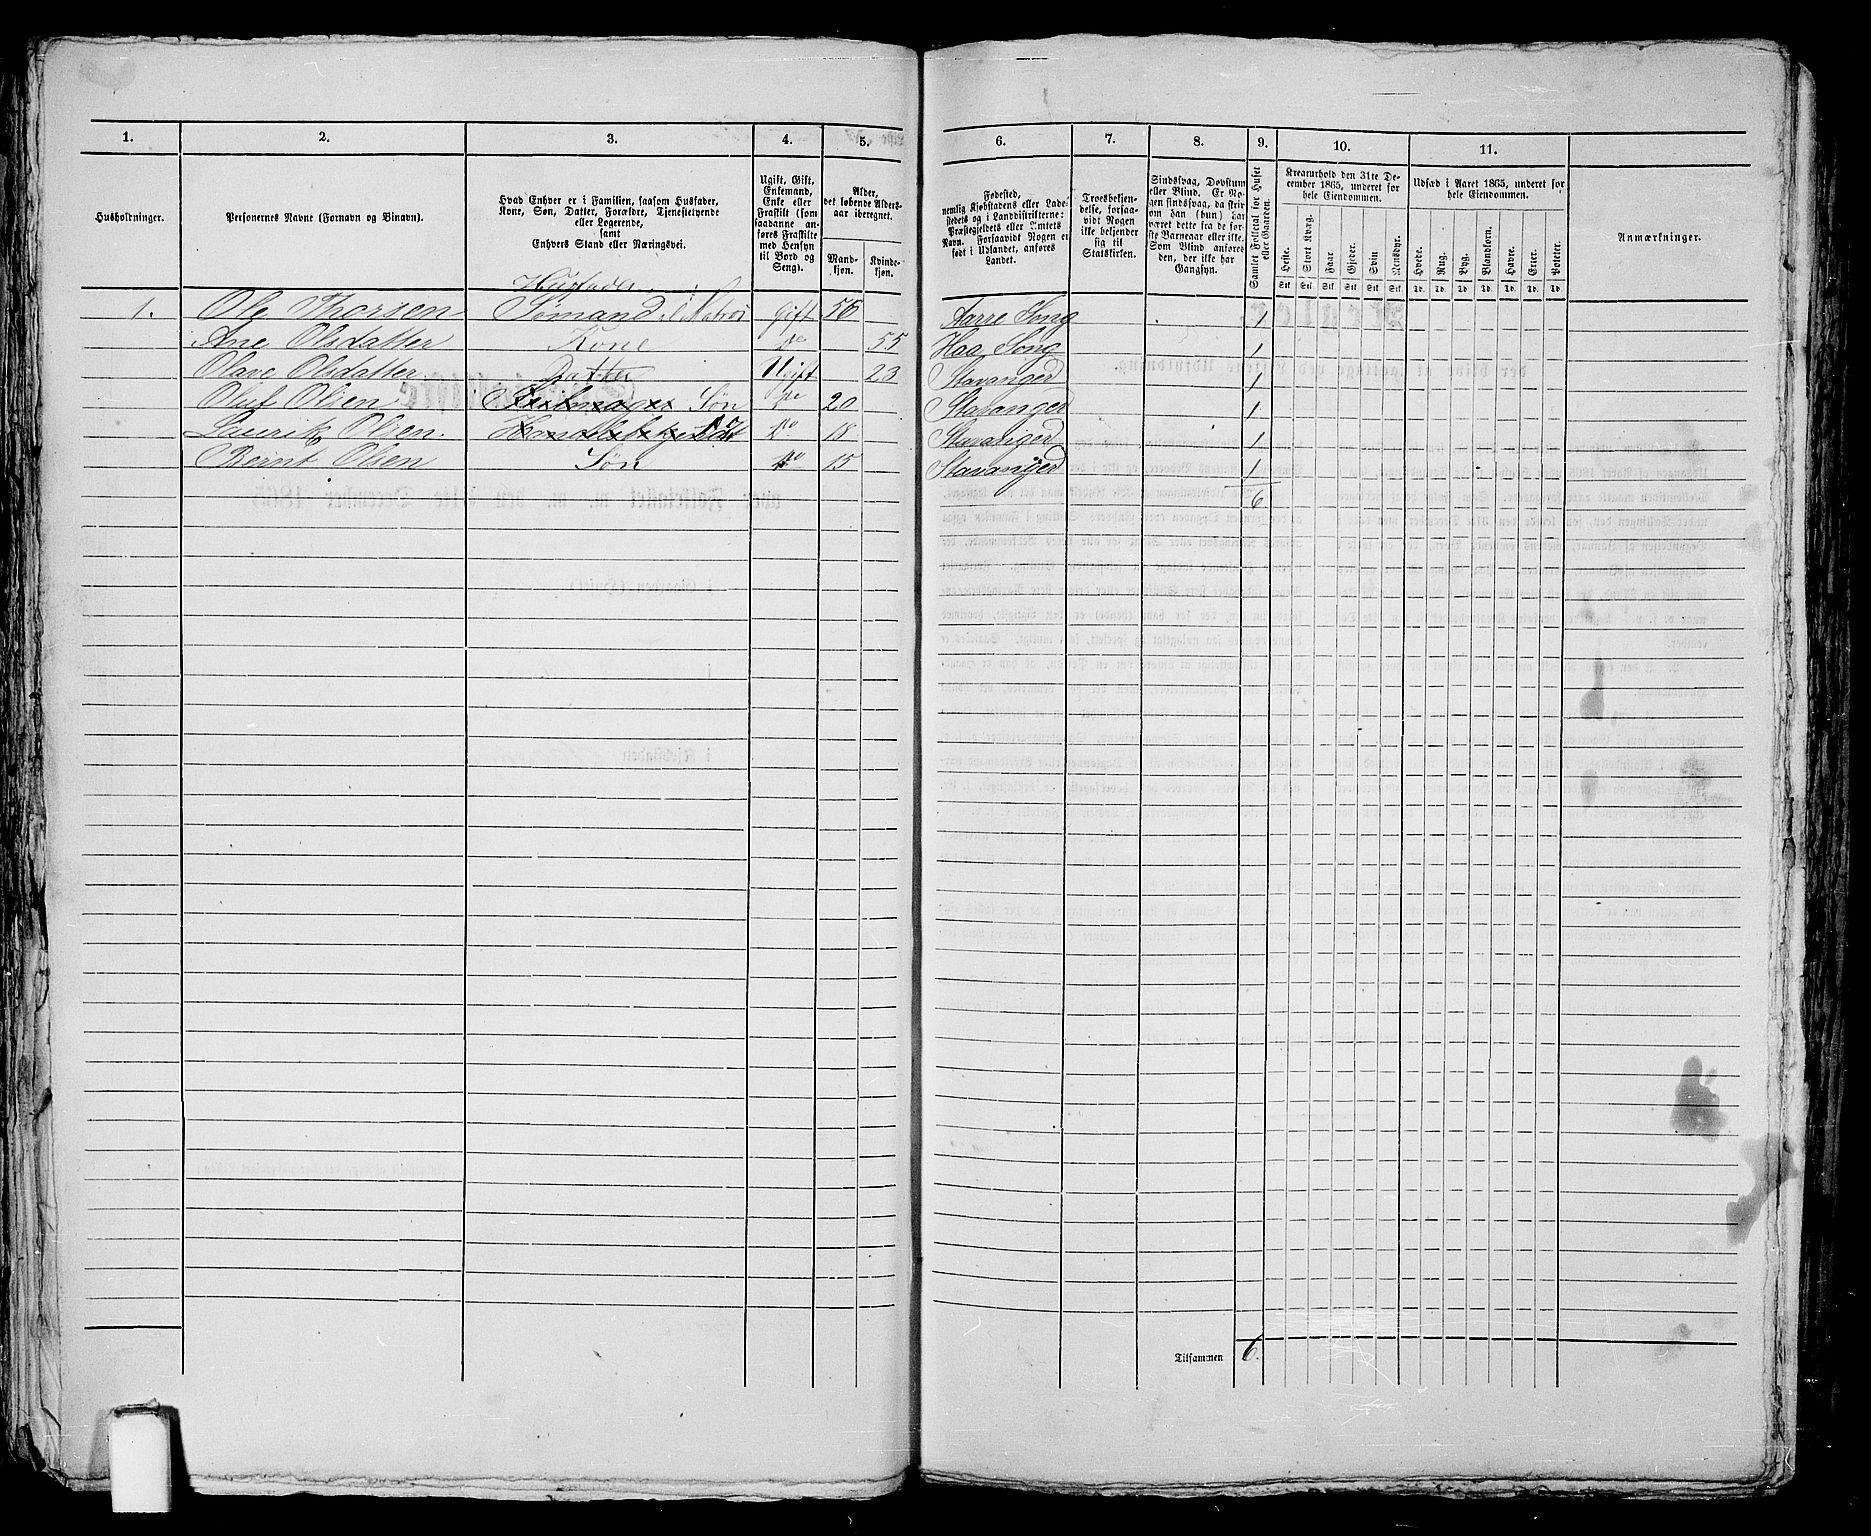 1. 2. 3. 4. 5. 6. 7. 8. 9. 10. 11.
Husholdninger.
Personernes Navne (Fornavn og Binavn).
Hvad Enhver er i Familien, saasom Husfader,
Kone, Søn, Datter, Forældre, Tjenestetyende
eller Logerende,
samt
Enhvers Stand eller Næringsvei.
Ugift, Gift,
Enkemand,
Enke eller
Fraskilt (som
saadanne an-
føres Fraskilte
med Hensyn
til Bord og
Seng).
Alder,
det løbende Alders-
aar iberegnet.
Mand-
kjøn.
Kvinde-
kjøn.
Fødested,
nemlig Kjøbstadens eller Lade-
stedets og i Landdistrikterne:
Præstegjeldets eller Amtets
Navn. Forsaavidt Nogen er
født i Udlandet, anføres
Landet.
Troesbekjen-
delse, forsaa-
vidt Nogen
ikke bekjender
sig til
Statskirken.
Sindssvag, Døvstum
eller Blind. Er No-
gen sindssvag, da skriv
om han (hun) har
været dette fra de før-
ste Barneaar eller ikke.
Som Blind anføres
den, der ikke har
Gangsyn.
Samlet Folketal for Huset
eller Gaarden.
Kreaturhold den 31te De-
cember 1865, underet for
hele Eiendommen.
Heste. Stort Kvæg. Faar. Gjeder. Svin Rensdyr.
Stk Stk Stk Stk Stk Stk
Udsæd i Aaret 1865, underet for
hele Eiendommen.
Hvede. Rug. Byg. Blandkorn. Havre. Erter. Poteter.
Td. Td. Td. Td. Td. Td. Td.
Anmærkninger.
Husfader
1. Ole Thorsen Sømand Matros Gift 56 Aarre Sogn 1
Ane Olsdatter Kone do 55 Haa Sogn 1
Olave Olsdatter Datter Ugift 23 Stavanger 1
Oluf Olsen Seilmager Søn do 20 Stavanger 1
Laurik Olsen. do 18 Stavanger 1
Bernt Olsen Søn do 15 Stavanger 1
6
Tilsammen 6.